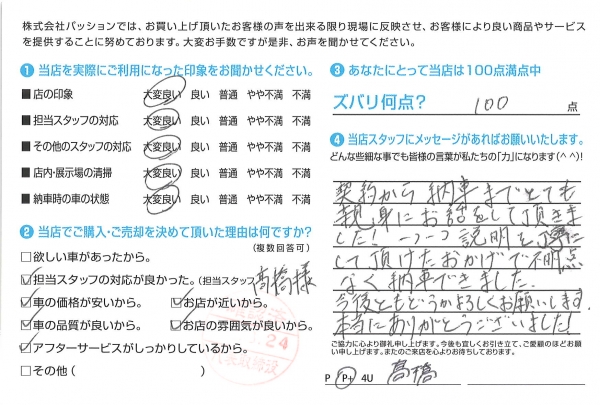 株式会社パッションでは、お買い上げ頂いたお客様の声を出来る限り現場に反映させ、お客様により良い商品やサービス
を提供することに努めております。大変お手数ですが是非、お声を聞かせてください。
❶ 当店を実際にご利用になった印象をお聞かせください。
■ 店の印象 大変良い 良い 普通 やや不満 不満
■ 担当スタッフの対応 大変良い 良い 普通 やや不満 不満
■ その他のスタッフの対応 大変良い 良い 普通 やや不満 不満
■ 店内・展示場の清掃 大変良い 良い 普通 やや不満 不満
■ 納車時の車の状態 大変良い 良い 普通 やや不満 不満
❷ 当店でご購入・ご売却を決めて頂いた理由は何ですか?
(複数回答可)
□欲しい車があったから。
☑担当スタッフの対応が良かった。(担当スタッフ 髙橋様
☑車の価格が安いから。 ☑お店が近いから。
☑車の品質が良いから。 ☑お店の雰囲気が良いから。
☑アフターサービスがしっかりしているから。
□その他 ( )
24
代表取締役
❸ あなたにとって当店は100点満点中
ズバリ何点? 100 点
❹ 当店スタッフにメッセージがあればお願いいたします。
どんな些細な事でも皆様の言葉が私たちの「力」になります(^^)!
契約から納車までとても
親身にお話をして頂きま
した!一つ一つ説明を丁寧に
して頂けたおかげで不明点
なく納車できました。
今後ともどうかよろしくお願いします。
本当にありがとうございました!
ご協力に心より御礼申し上げます。今後も宜しくお引き立て、ご愛顧のほどお願
い申し上げます。またのご来店を心よりお待ちしております。
P P+ 4U 髙橋